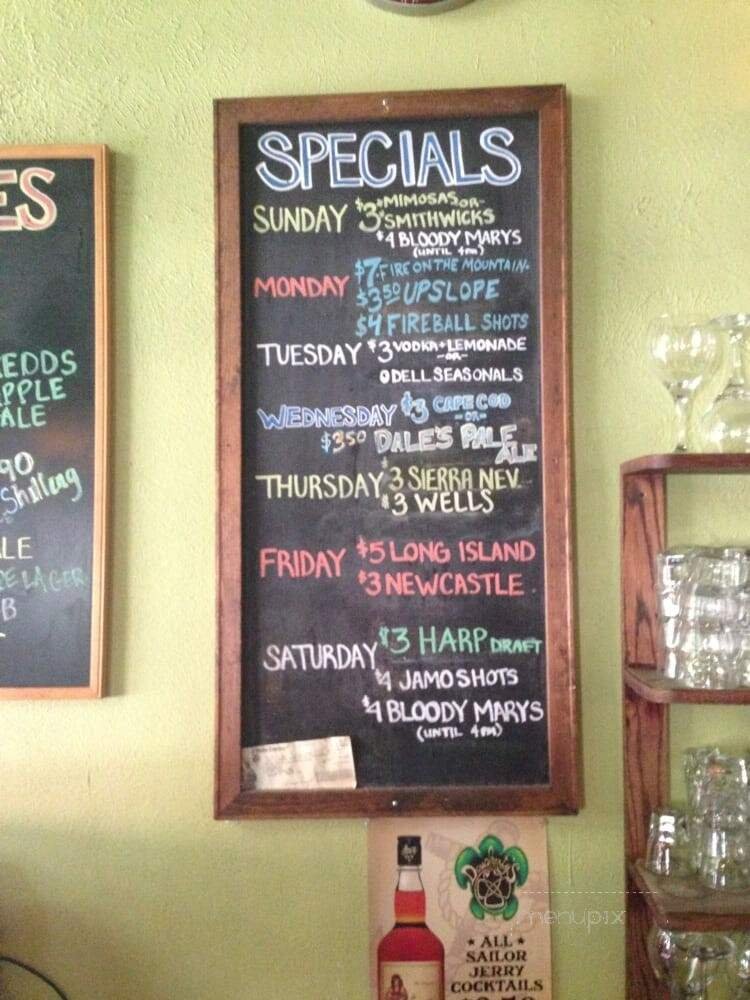 ES
EDDS
PPLE
ALE
90
Shilling
LE
E LAGER
B
SPECIALS
SUNDAY $3 MIMOSAS -OR-
$3 SMITHWICKS
$4 BLOODY MARYS
(UNTIL 4PM)
MONDAY $7 FIRE ON THE MOUNTAIN
$3.50 UPSLOPE
$4 FIREBALL SHOTS
TUESDAY $3 VODKA + LEMONADE
-OR-
ODELL SEASONALS
WEDNESDAY $3 CAPE COD
-OR-
$3.50 DALE'S PALE
ALE
THURSDAY $3 SIERRA NEV.
$3 WELLS
FRIDAY $5 LONG ISLAND
$3 NEWCASTLE
SATURDAY $3 HARP DRAFT
$4 JAMO SHOTS
$4 BLOODY MARYS
(UNTIL 4PM)
menupix
★ ALL ★
SAILOR
JERRY
COCKTAILS